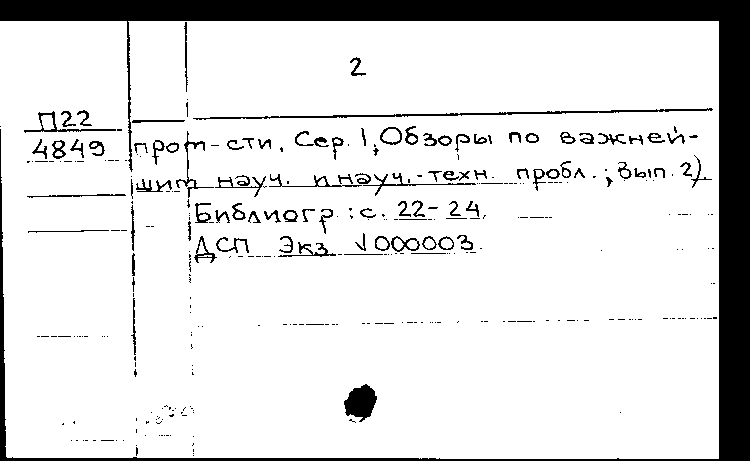 2
П22
4849
пром-сти. Сер. 1, Обзоры по важней-
шим науч. и науч.-техн. пробл.; Вып. 2).
Библиогр.: с. 22-24.
ДСП Экз. √000003.